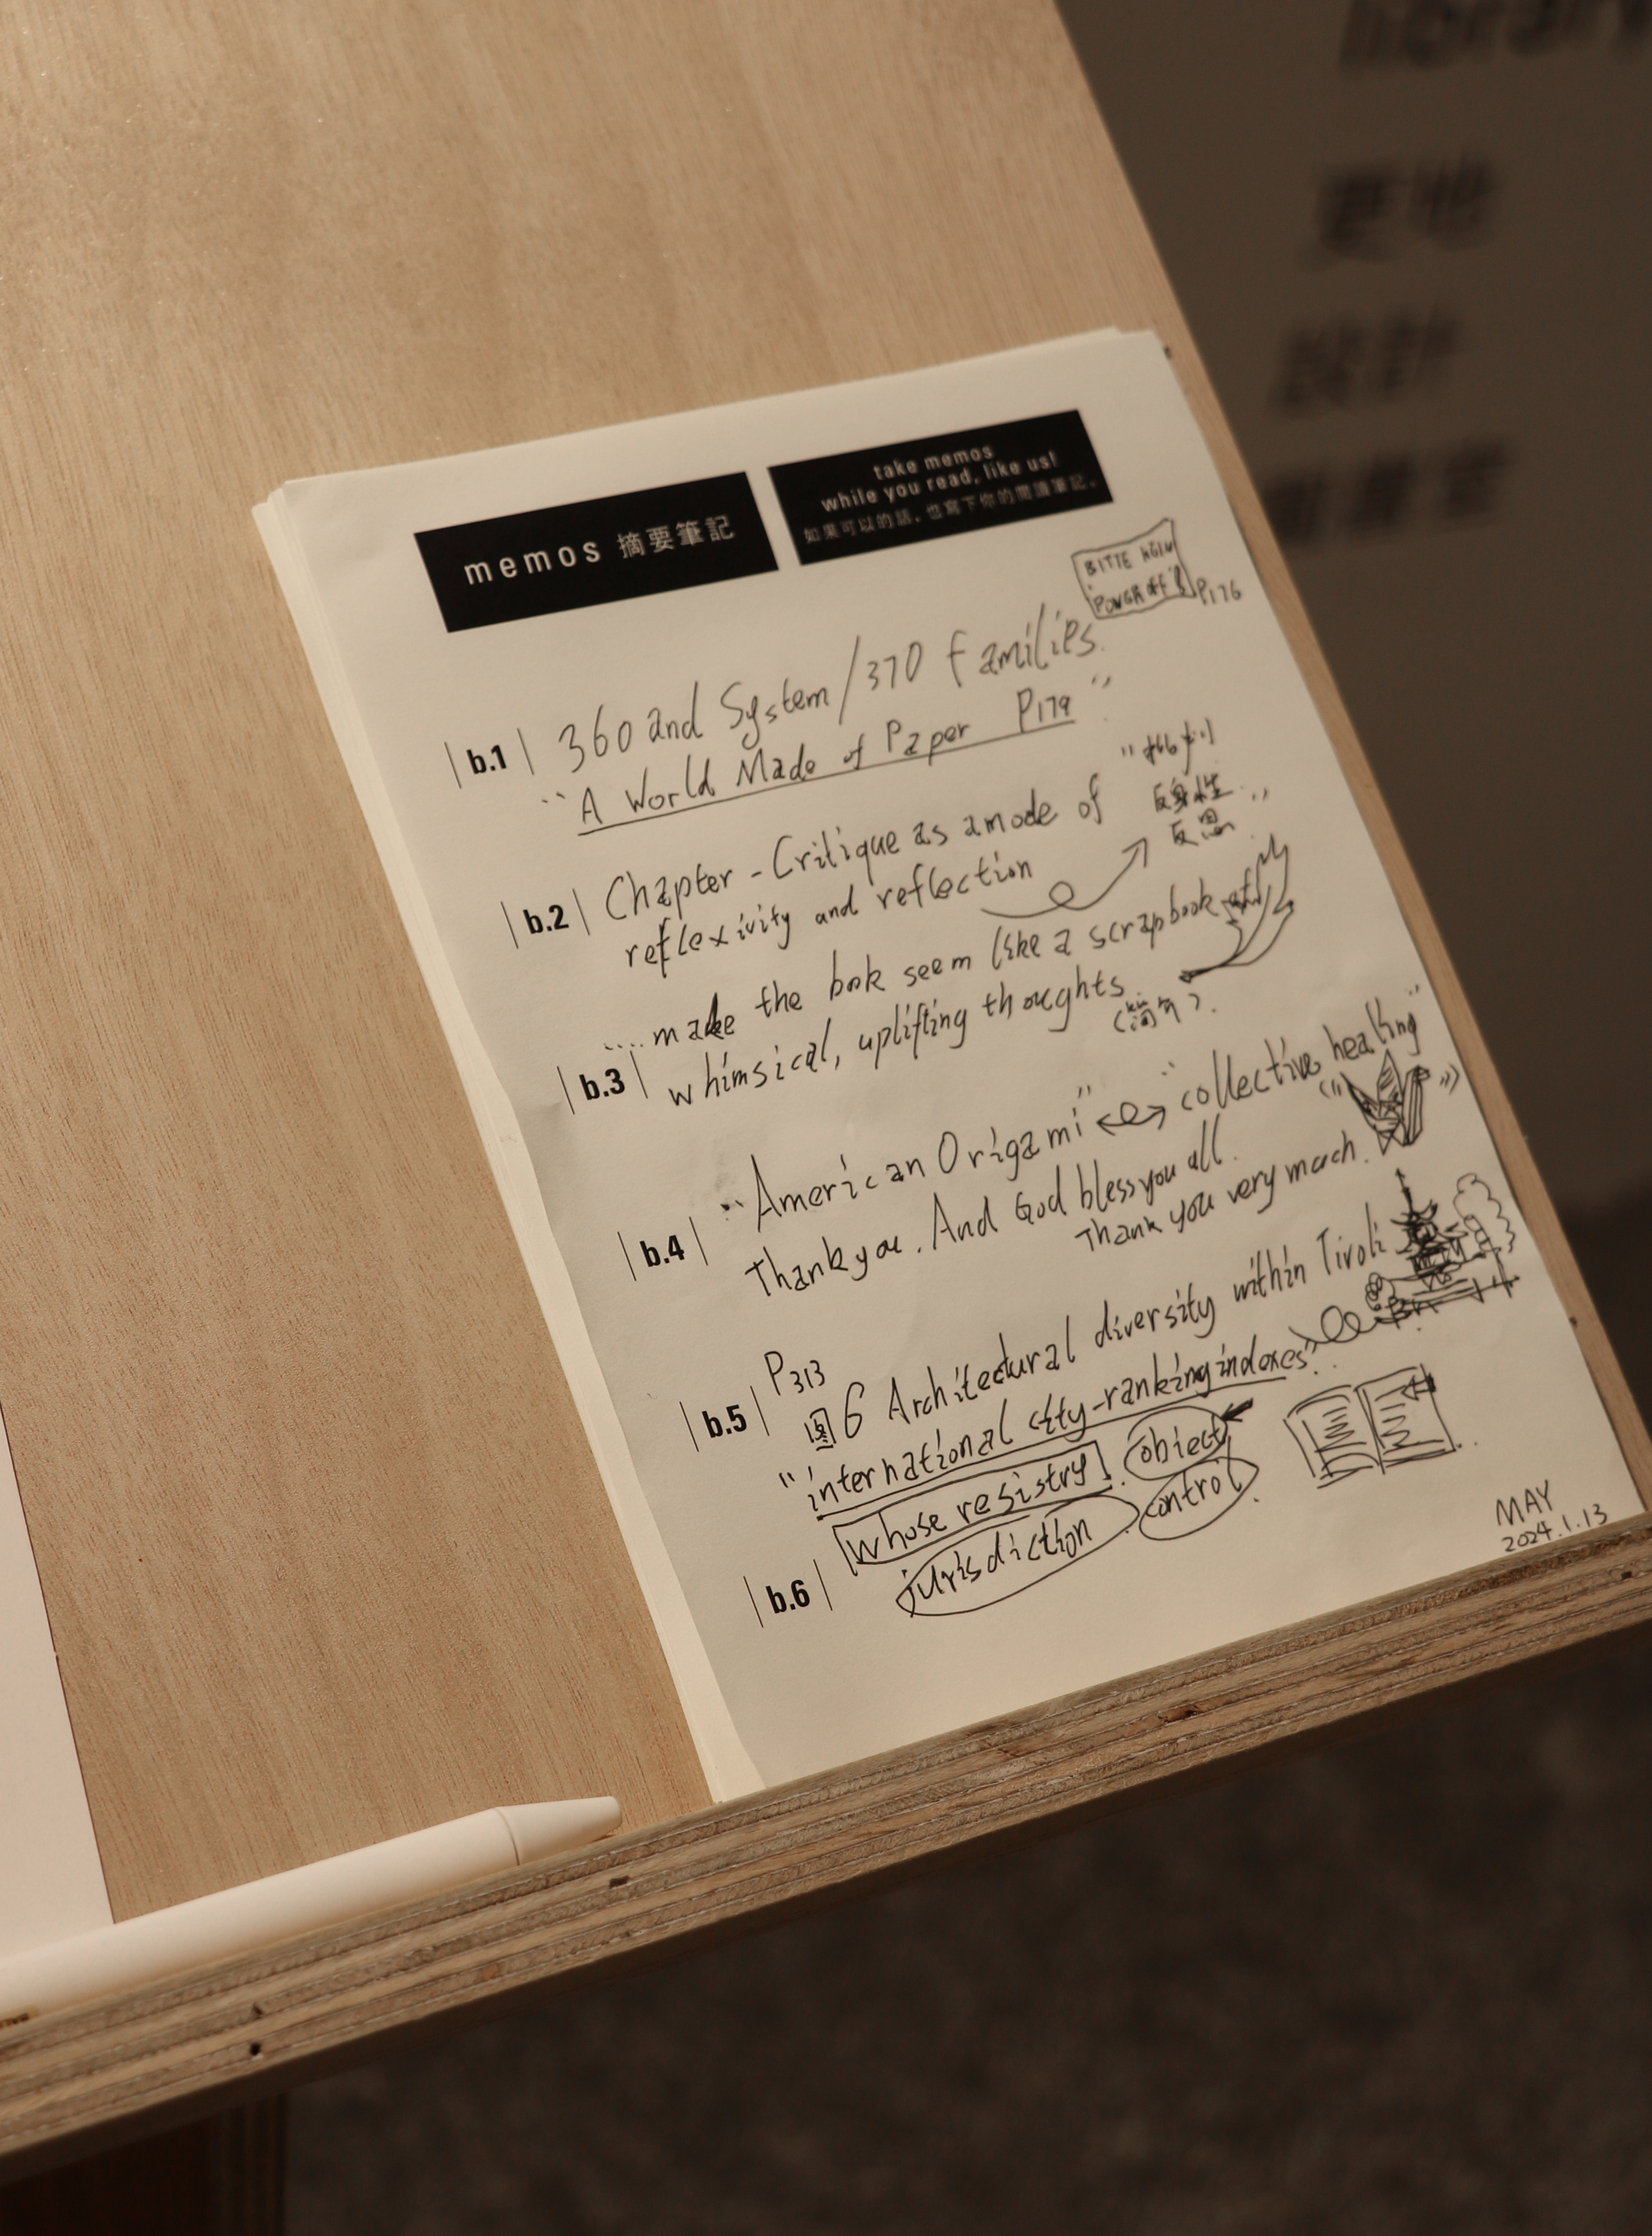 memos 摘要筆記
take memos
while you read, like us!
如果可以的話，也寫下你的閱讀筆記。
BITTE
P176
b.1
360 and System/370 families.
"A World Made of Paper P179"
b.2
Chapter - Critique as a mode of
reflexivity and reflection
"批判
反身性
反思"
b.3
.... make the book seem like a scrapbook of
whimsical, uplifting thoughts.
b.4
"American Origami" "collective healing"
Thank you. And God bless you all.
Thank you very much.
b.5
P313
圖6 Architectural diversity within Tivoli
"international city-ranking indexes".
b.6
whose resistry. object
jurisdiction. control.
MAY
2024.1.13
library
設計